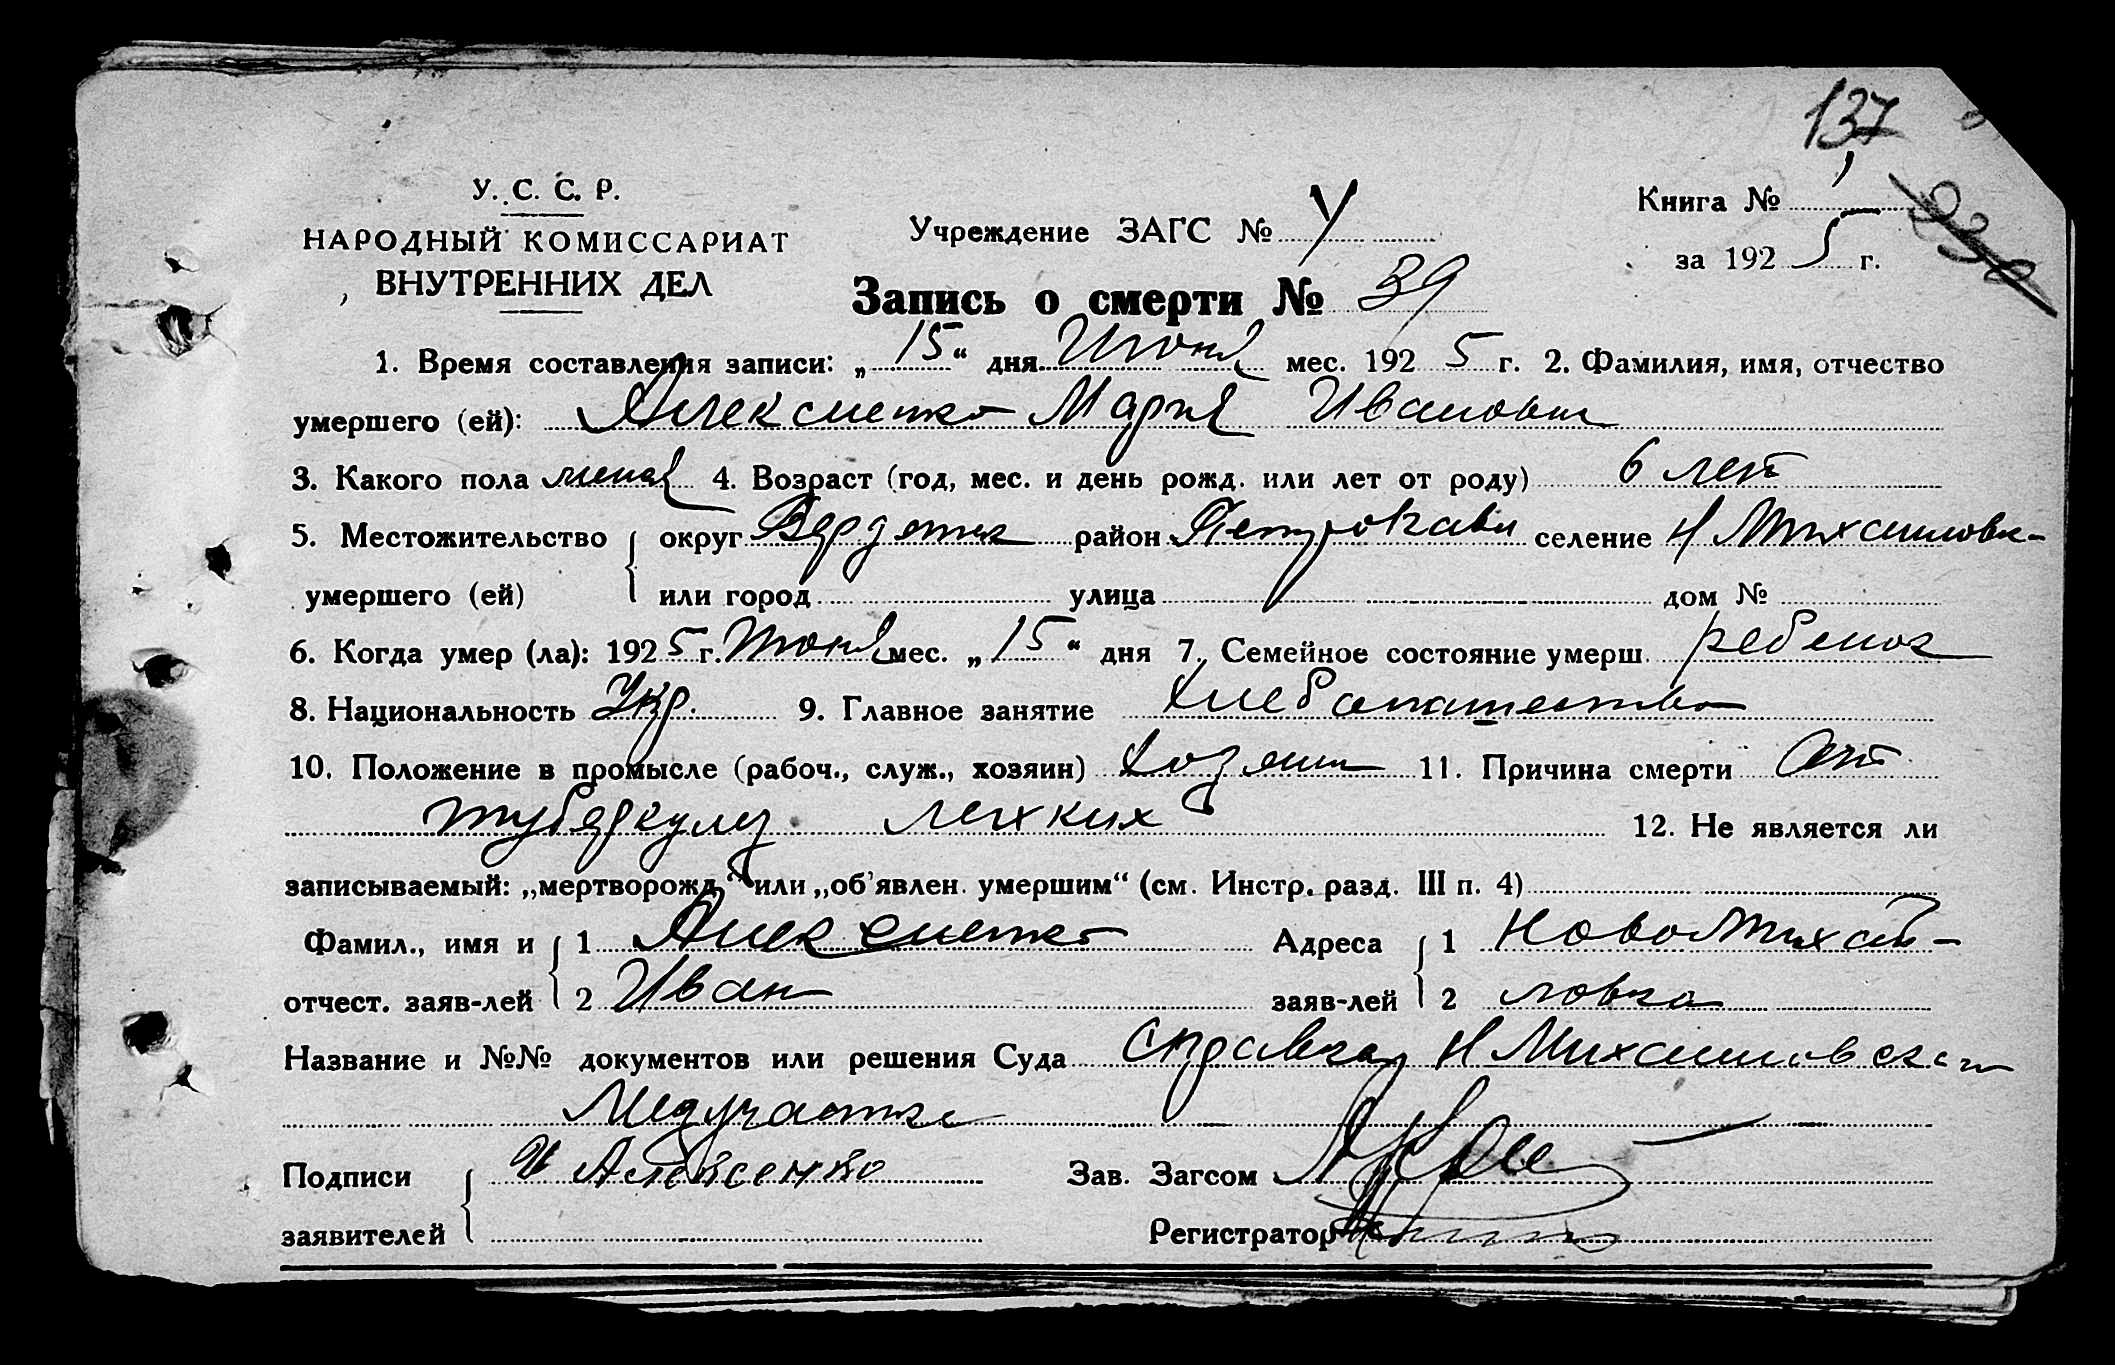 137
У. С. С. Р.
НАРОДНЫЙ КОМИССАРИАТ
ВНУТРЕННИХ ДЕЛ
Учреждение ЗАГС №
Книга № 1
за 1925 г.
Запись о смерти № 39
1. Время составления записи: „15“ дня Июня мес. 1925 г. 2. Фамилия, имя, отчество
умершего (ей): Алексенко Мария Ивановн
3. Какого пола женск 4. Возраст (год, мес. и день рожд. или лет от роду) 6 лет
5. Местожительство округ Бердянск район Петрокави селение Н Михайловк-
умершего (ей) или город улица дом №
6. Когда умер (ла): 1925 г. Июня мес. „15“ дня 7. Семейное состояние умерш. ребенок
8. Национальность Укр. 9. Главное занятие хлебопашество
10. Положение в промысле (рабоч., служ., хозяин) хозяин 11. Причина смерти От
туберкулез легких 12. Не является ли
записываемый: „мертворожд.“ или „об'явлен. умершим“ (см. Инстр. разд. III п. 4)
Фамил., имя и 1 Алексенко Адреса 1 Ново Михай-
отчест. заяв-лей 2 Иван заяв-лей 2 ловка
Название и №№ документов или решения Суда Справка Н Михайловской
Медучастка
Подписи И Алексенко Зав. Загсом
заявителей Регистратор